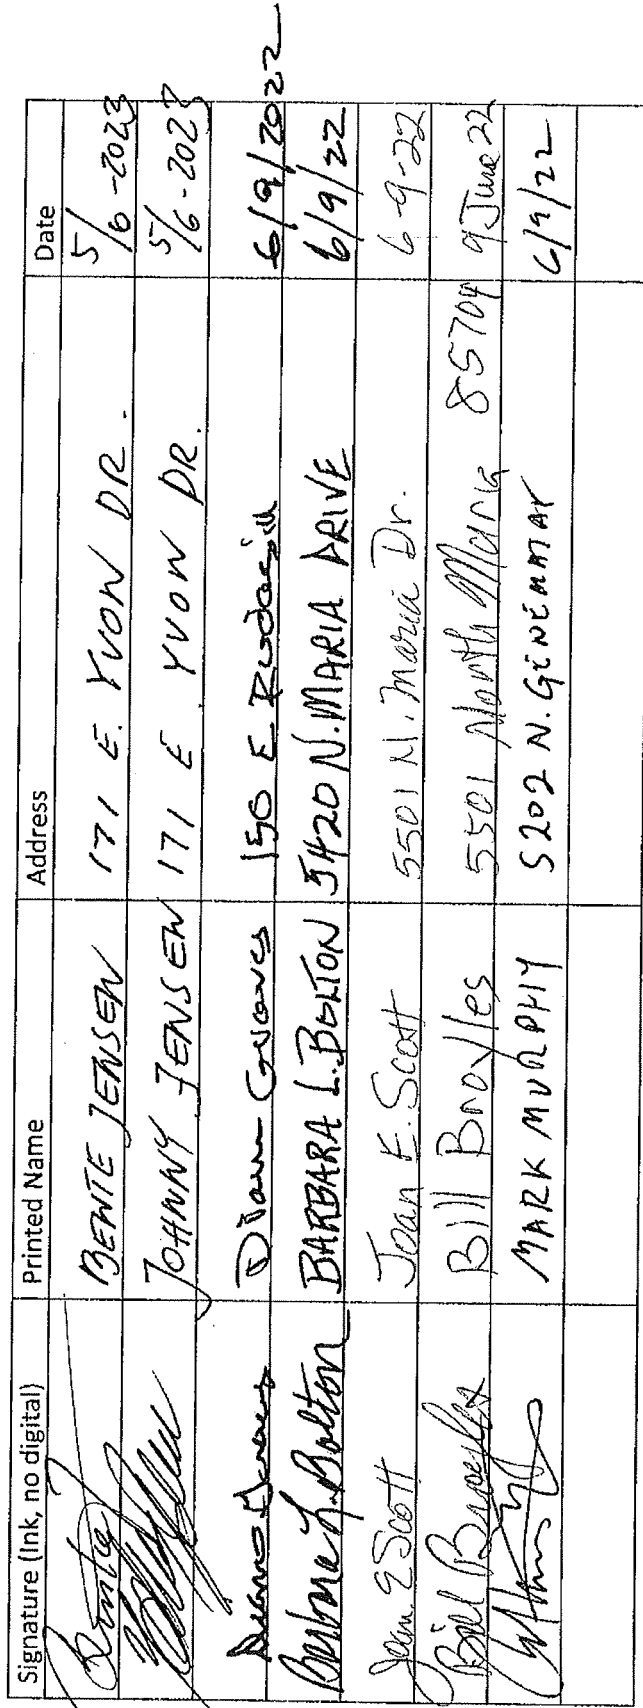 Signature (Ink, no digital) Printed Name Address Date
Bente BENTE JENSEN 171 E. YVON DR. 5/6-2023
JOHNNY JENSEN 171 E YVON DR. 5/6-2023
Diane Graves Diane Graves 150 E. Rudasill 6/9/2022
Barbara L. Bolton BARBARA L. BOLTON 5420 N. MARIA DRIVE 6/9/22
Joan E Scott Joan E. Scott 5501 N. Maria Dr. 6-9-22
Bill Broyles Bill Broyles 5501 North Maria 85704 9 June 22
MARK MURPHY 5202 N. GENEMATAS 6/9/22